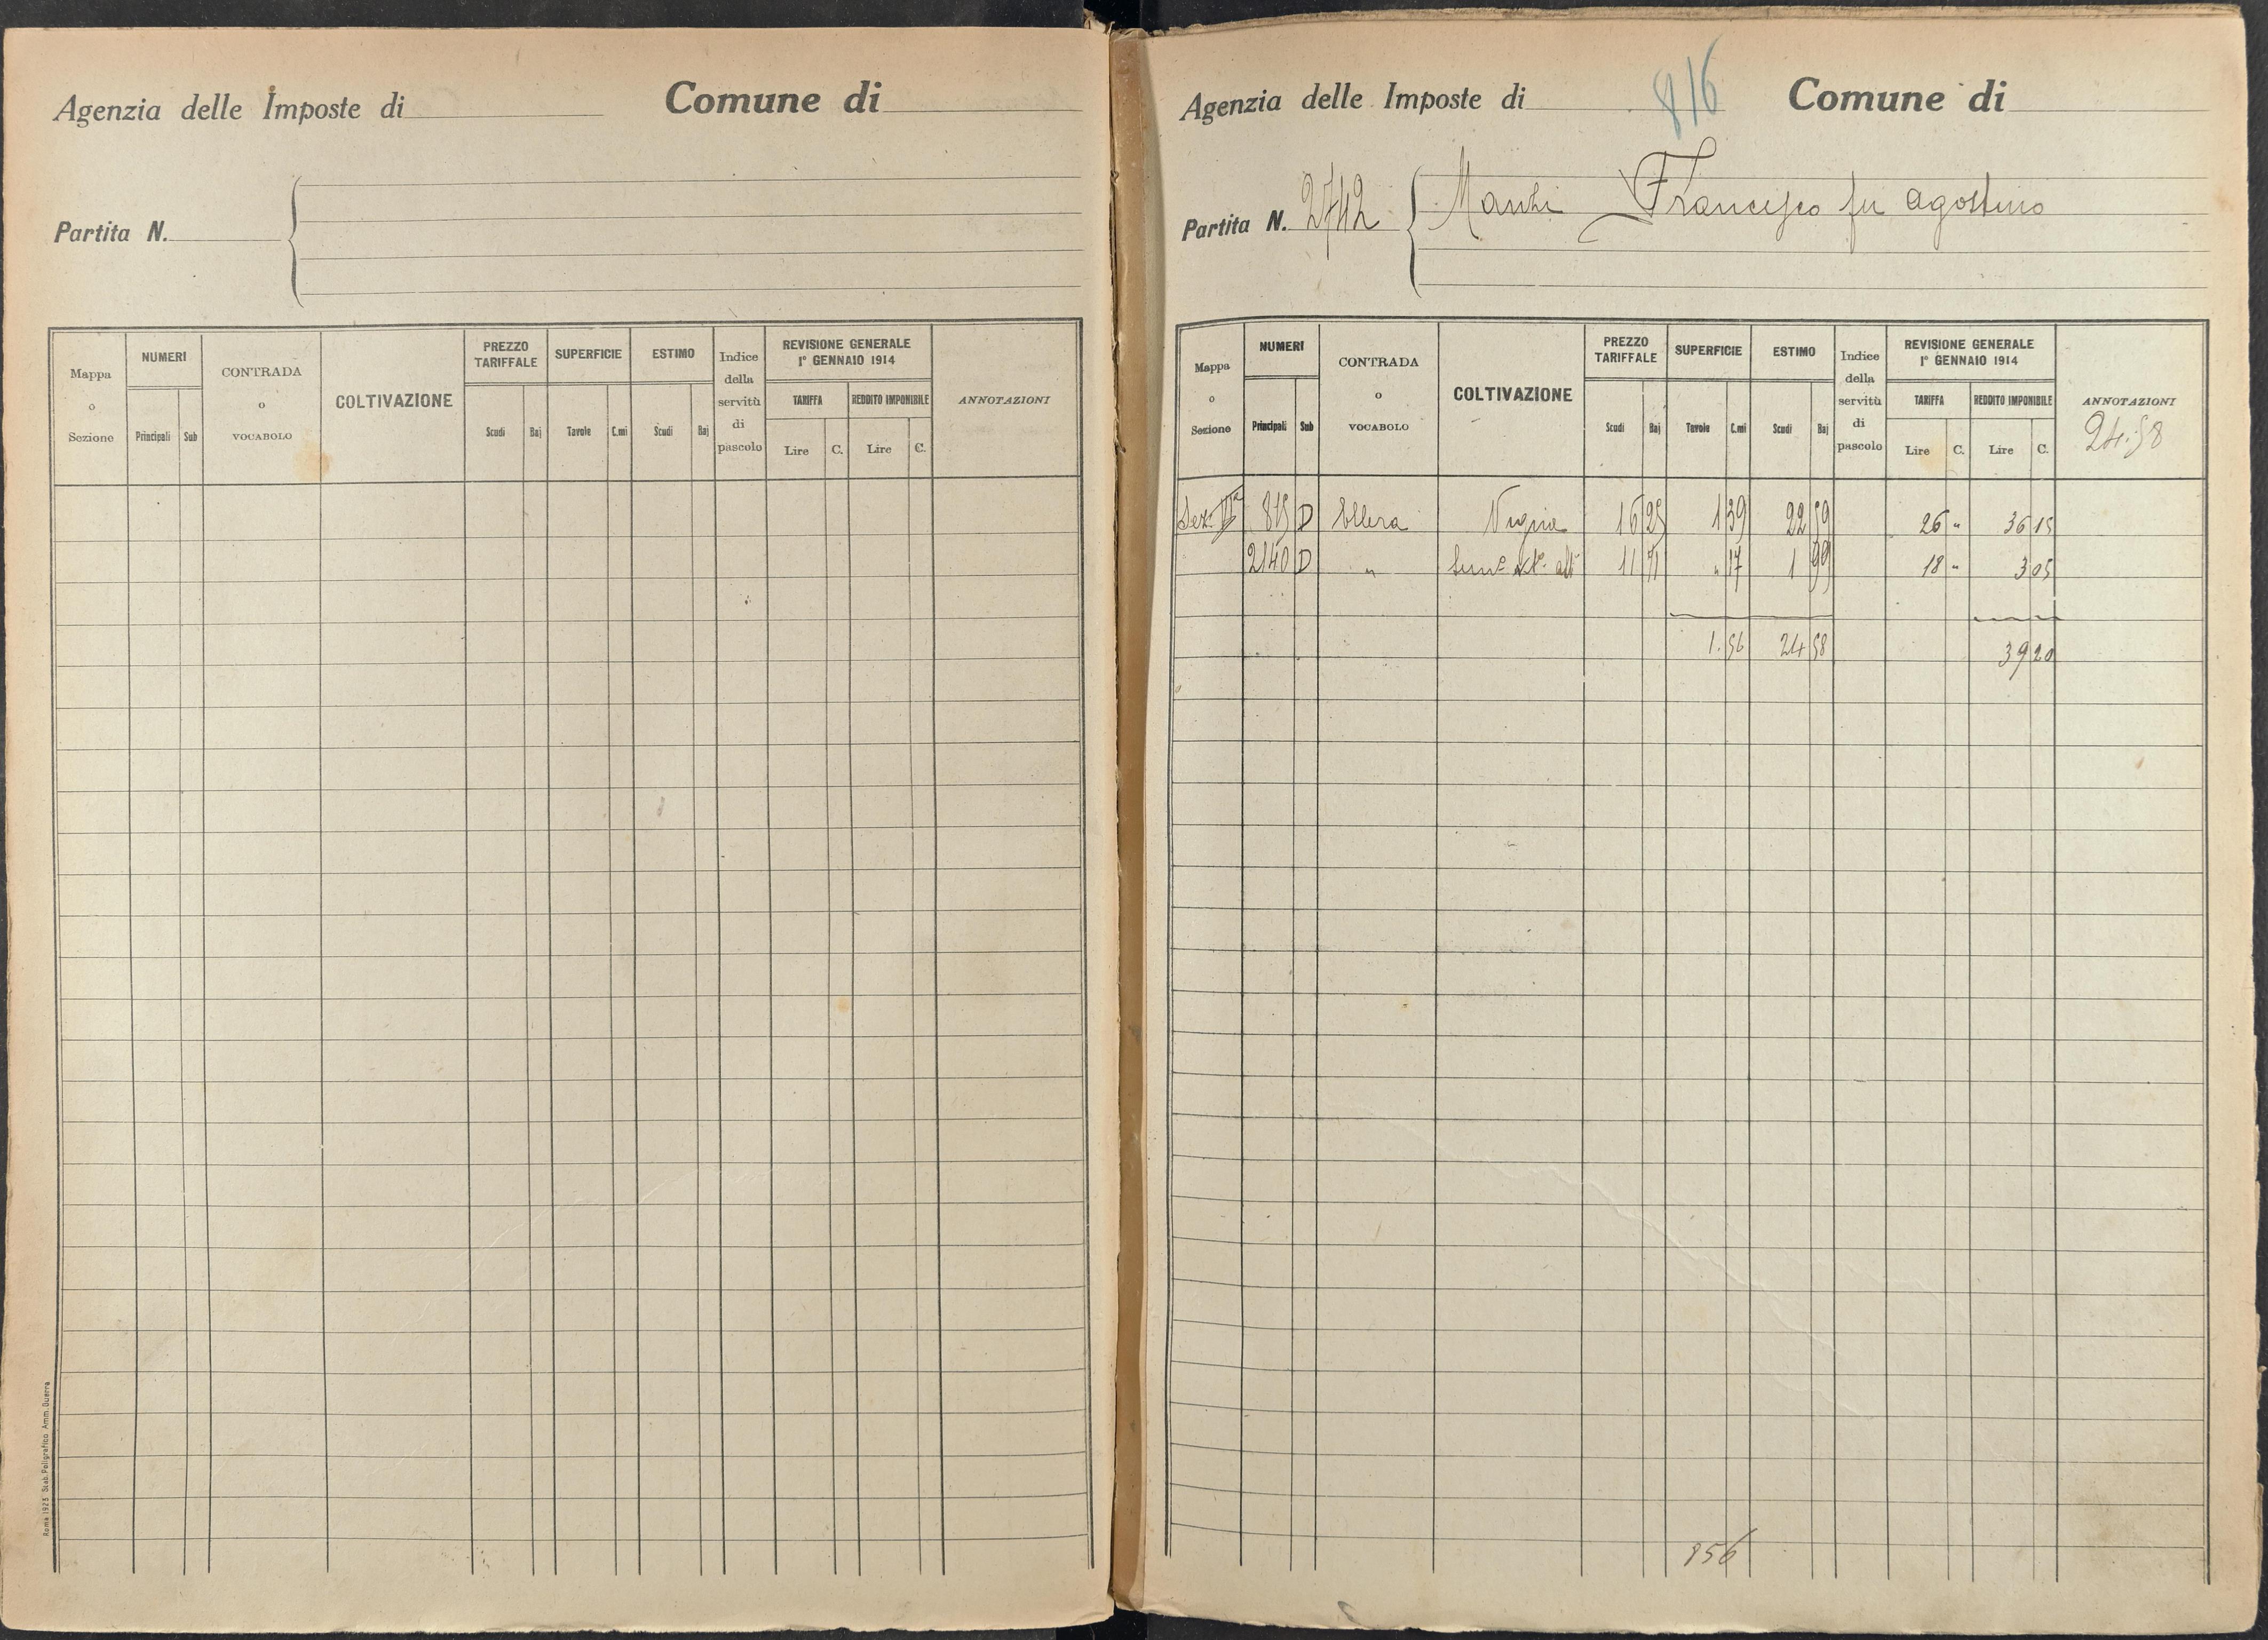 Agenzia delle Imposte di Comune di
Partita N.
Mappa o Sezione
NUMERI
Principali Sub
CONTRADA o VOCABOLO
COLTIVAZIONE
PREZZO TARIFFALE
Scudi Baj
SUPERFICIE
Tavole C.mi
ESTIMO
Scudi Baj
Indice della servitù di pascolo
REVISIONE GENERALE
1° GENNAIO 1914
TARIFFA REDDITO IMPONIBILE
Lire C. Lire C.
ANNOTAZIONI
Roma 1923 Stab. Poligrafico Amm. Guerra
816
Agenzia delle Imposte di Comune di
Partita N. 2742 Francesco fu Agostino
Mappa o Sezione
NUMERI
Principali Sub
CONTRADA o VOCABOLO
COLTIVAZIONE
PREZZO TARIFFALE
Scudi Baj
SUPERFICIE
Tavole C.mi
ESTIMO
Scudi Baj
Indice della servitù di pascolo
REVISIONE GENERALE
1° GENNAIO 1914
TARIFFA REDDITO IMPONIBILE
Lire C. Lire C.
ANNOTAZIONI
24.58
Sez. 815 D Ellera Vigna 16 25 1 39 22 59 26 " 36 15
2140 D " 11 71 " 17 1 99 18 " 3 05
1.56 24 58 39 20
856